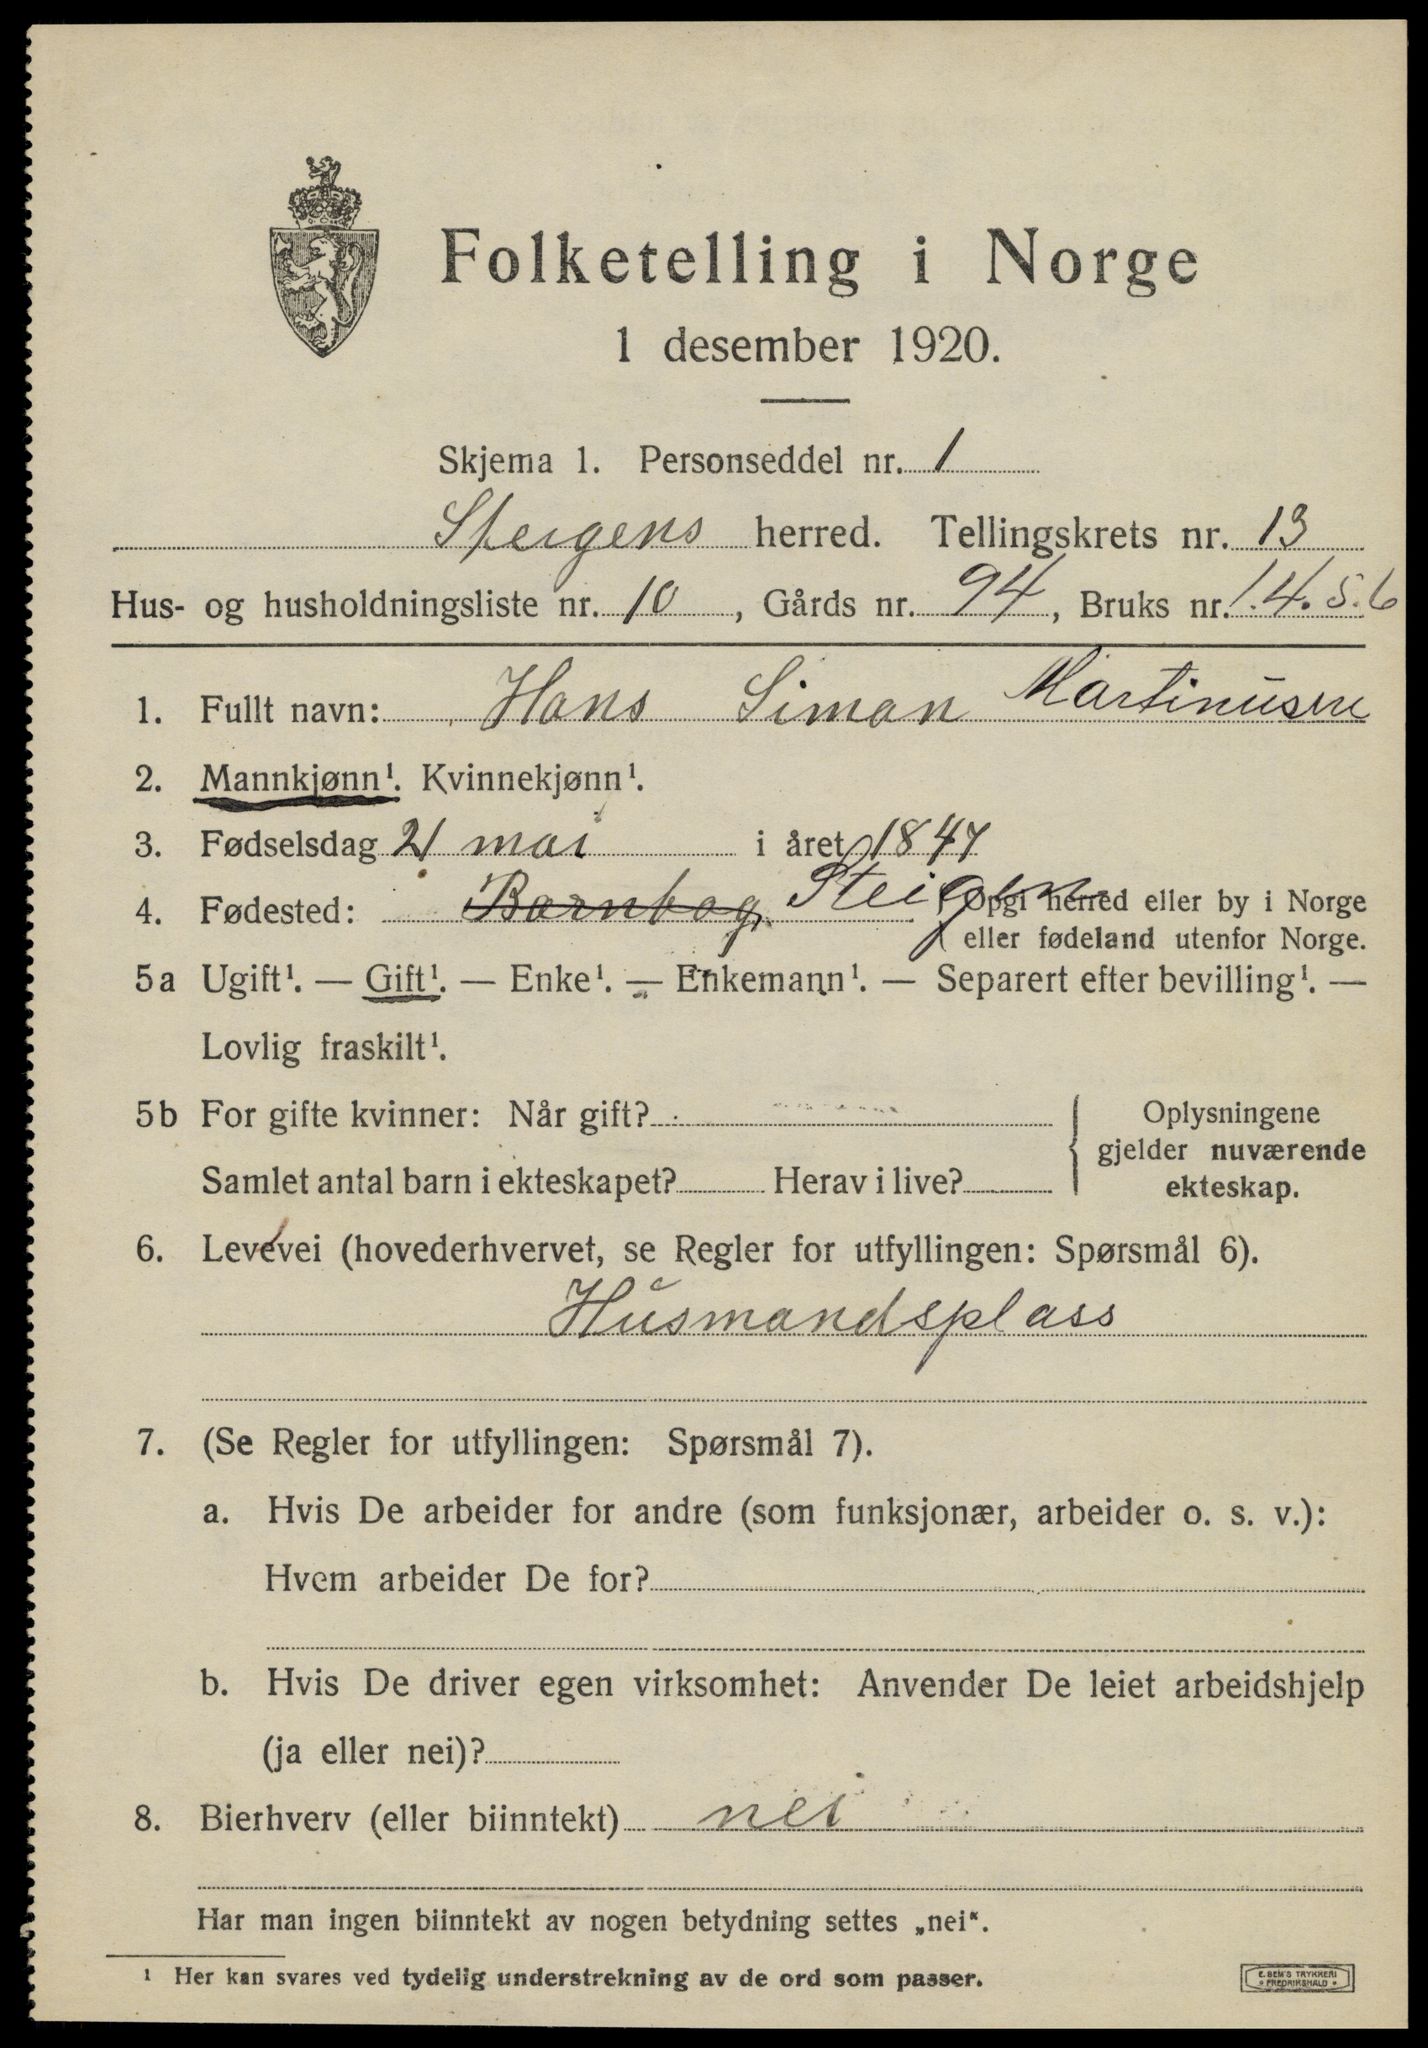 Folketelling i Norge
1 desember 1920.
Skjema 1. Personseddel nr. 1
Steigens herred. Tellingskrets nr. 13
Hus- og husholdningsliste nr. 10, Gårds nr. 94, Bruks nr. 1.4.5.6
1. Fullt navn: Hans Simon Martinusen
2. Mannkjønn¹. Kvinnekjønn¹.
3. Fødselsdag 21 mai i året 1847
4. Fødested: Steigen Opgi herred eller by i Norge
eller fødeland utenfor Norge.
5a Ugift¹. — Gift¹. — Enke¹. — Enkemann¹. — Separert efter bevilling¹. —
Lovlig fraskilt¹.
5b For gifte kvinner: Når gift?
Samlet antal barn i ekteskapet? Herav i live?
Oplysningene
gjelder nuværende
ekteskap.
6. Levevei (hovederhvervet, se Regler for utfyllingen: Spørsmål 6).
Husmandsplass
7. (Se Regler for utfyllingen: Spørsmål 7).
a. Hvis De arbeider for andre (som funksjonær, arbeider o. s. v.):
Hvem arbeider De for?
b. Hvis De driver egen virksomhet: Anvender De leiet arbeidshjelp
(ja eller nei)?
8. Bierhverv (eller biinntekt) nei
Har man ingen biinntekt av nogen betydning settes „nei“.
¹ Her kan svares ved tydelig understrekning av de ord som passer.
E. SEM'S TRYKKERI
FREDRIKSHALD